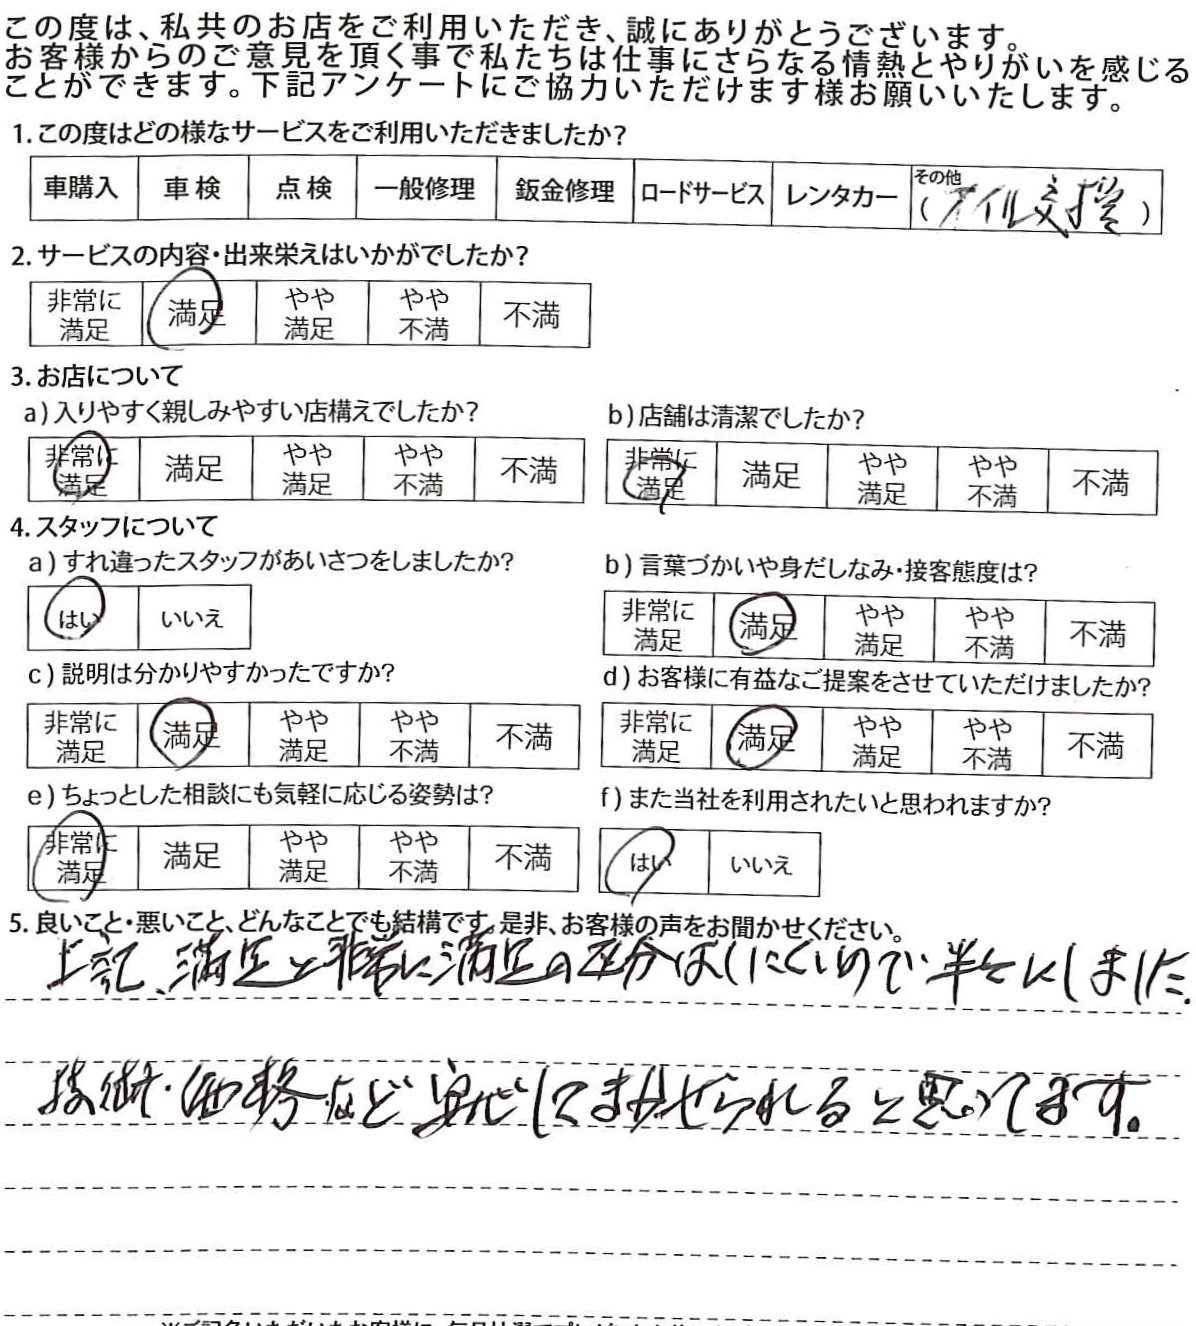 この度は、私共のお店をご利用いただき、誠にありがとうございます。
お客様からのご意見を頂く事で私たちは仕事にさらなる情熱とやりがいを感じる
ことができます。下記アンケートにご協力いただけます様お願いいたします。
1.この度はどの様なサービスをご利用いただきましたか?
車購入 車検 点検 一般修理 鈑金修理 ロードサービス レンタカー その他
(オイル交換)
2.サービスの内容・出来栄えはいかがでしたか?
非常に満足 満足 やや満足 やや不満 不満
3.お店について
a)入りやすく親しみやすい店構えでしたか? b)店舗は清潔でしたか?
非常に満足 満足 やや満足 やや不満 不満 非常に満足 満足 やや満足 やや不満 不満
4.スタッフについて
a)すれ違ったスタッフがあいさつをしましたか? b)言葉づかいや身だしなみ・接客態度は?
はい いいえ 非常に満足 満足 やや満足 やや不満 不満
c)説明は分かりやすかったですか? d)お客様に有益なご提案をさせていただけましたか?
非常に満足 満足 やや満足 やや不満 不満 非常に満足 満足 やや満足 やや不満 不満
e)ちょっとした相談にも気軽に応じる姿勢は? f)また当社を利用されたいと思われますか?
非常に満足 満足 やや満足 やや不満 不満 はい いいえ
5.良いこと・悪いこと、どんなことでも結構です。是非、お客様の声をお聞かせください。
上記、満足と非常に満足の区分はしにくいので 半々にしました.
技術・価格など安心してまかせられると思ってます。